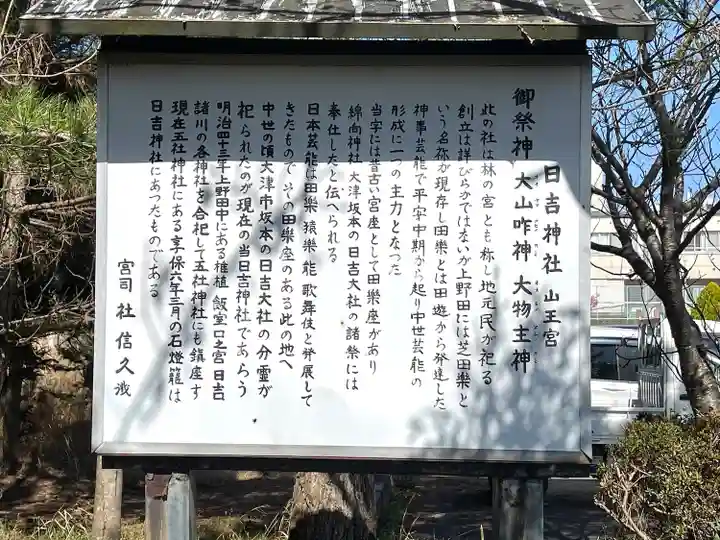 日吉神社 山王宮
御祭神 大山咋神 大物主神
此の社は林の宮とも称し地元民が祀る
創立は詳びらかではないが上野田には芝田楽と
いう名称が現存し田楽とは田遊から発達した
神事芸能で平安中期から起り中世芸能の
形成に一つの主力となった
当字には昔古い宮座として田樂座があり
綿向神社 大津坂本の日吉大社の諸祭には
奉仕したと伝へられる
日本芸能は田樂 猿樂 能 歌舞伎と発展して
きたもので その田樂座のある此の地へ
中世の頃大津市坂本の日吉大社の分霊が
祀られたのが現在の当日吉神社であらう
明治四十三年上野田中にある椎植 飯室口之宮 日吉
諸川の各神社を合祀して五社神社にも鎮座す
現在五社神社にある享保六年三月の石燈籠は
日吉神社にあつたものである
宮司 社 信久